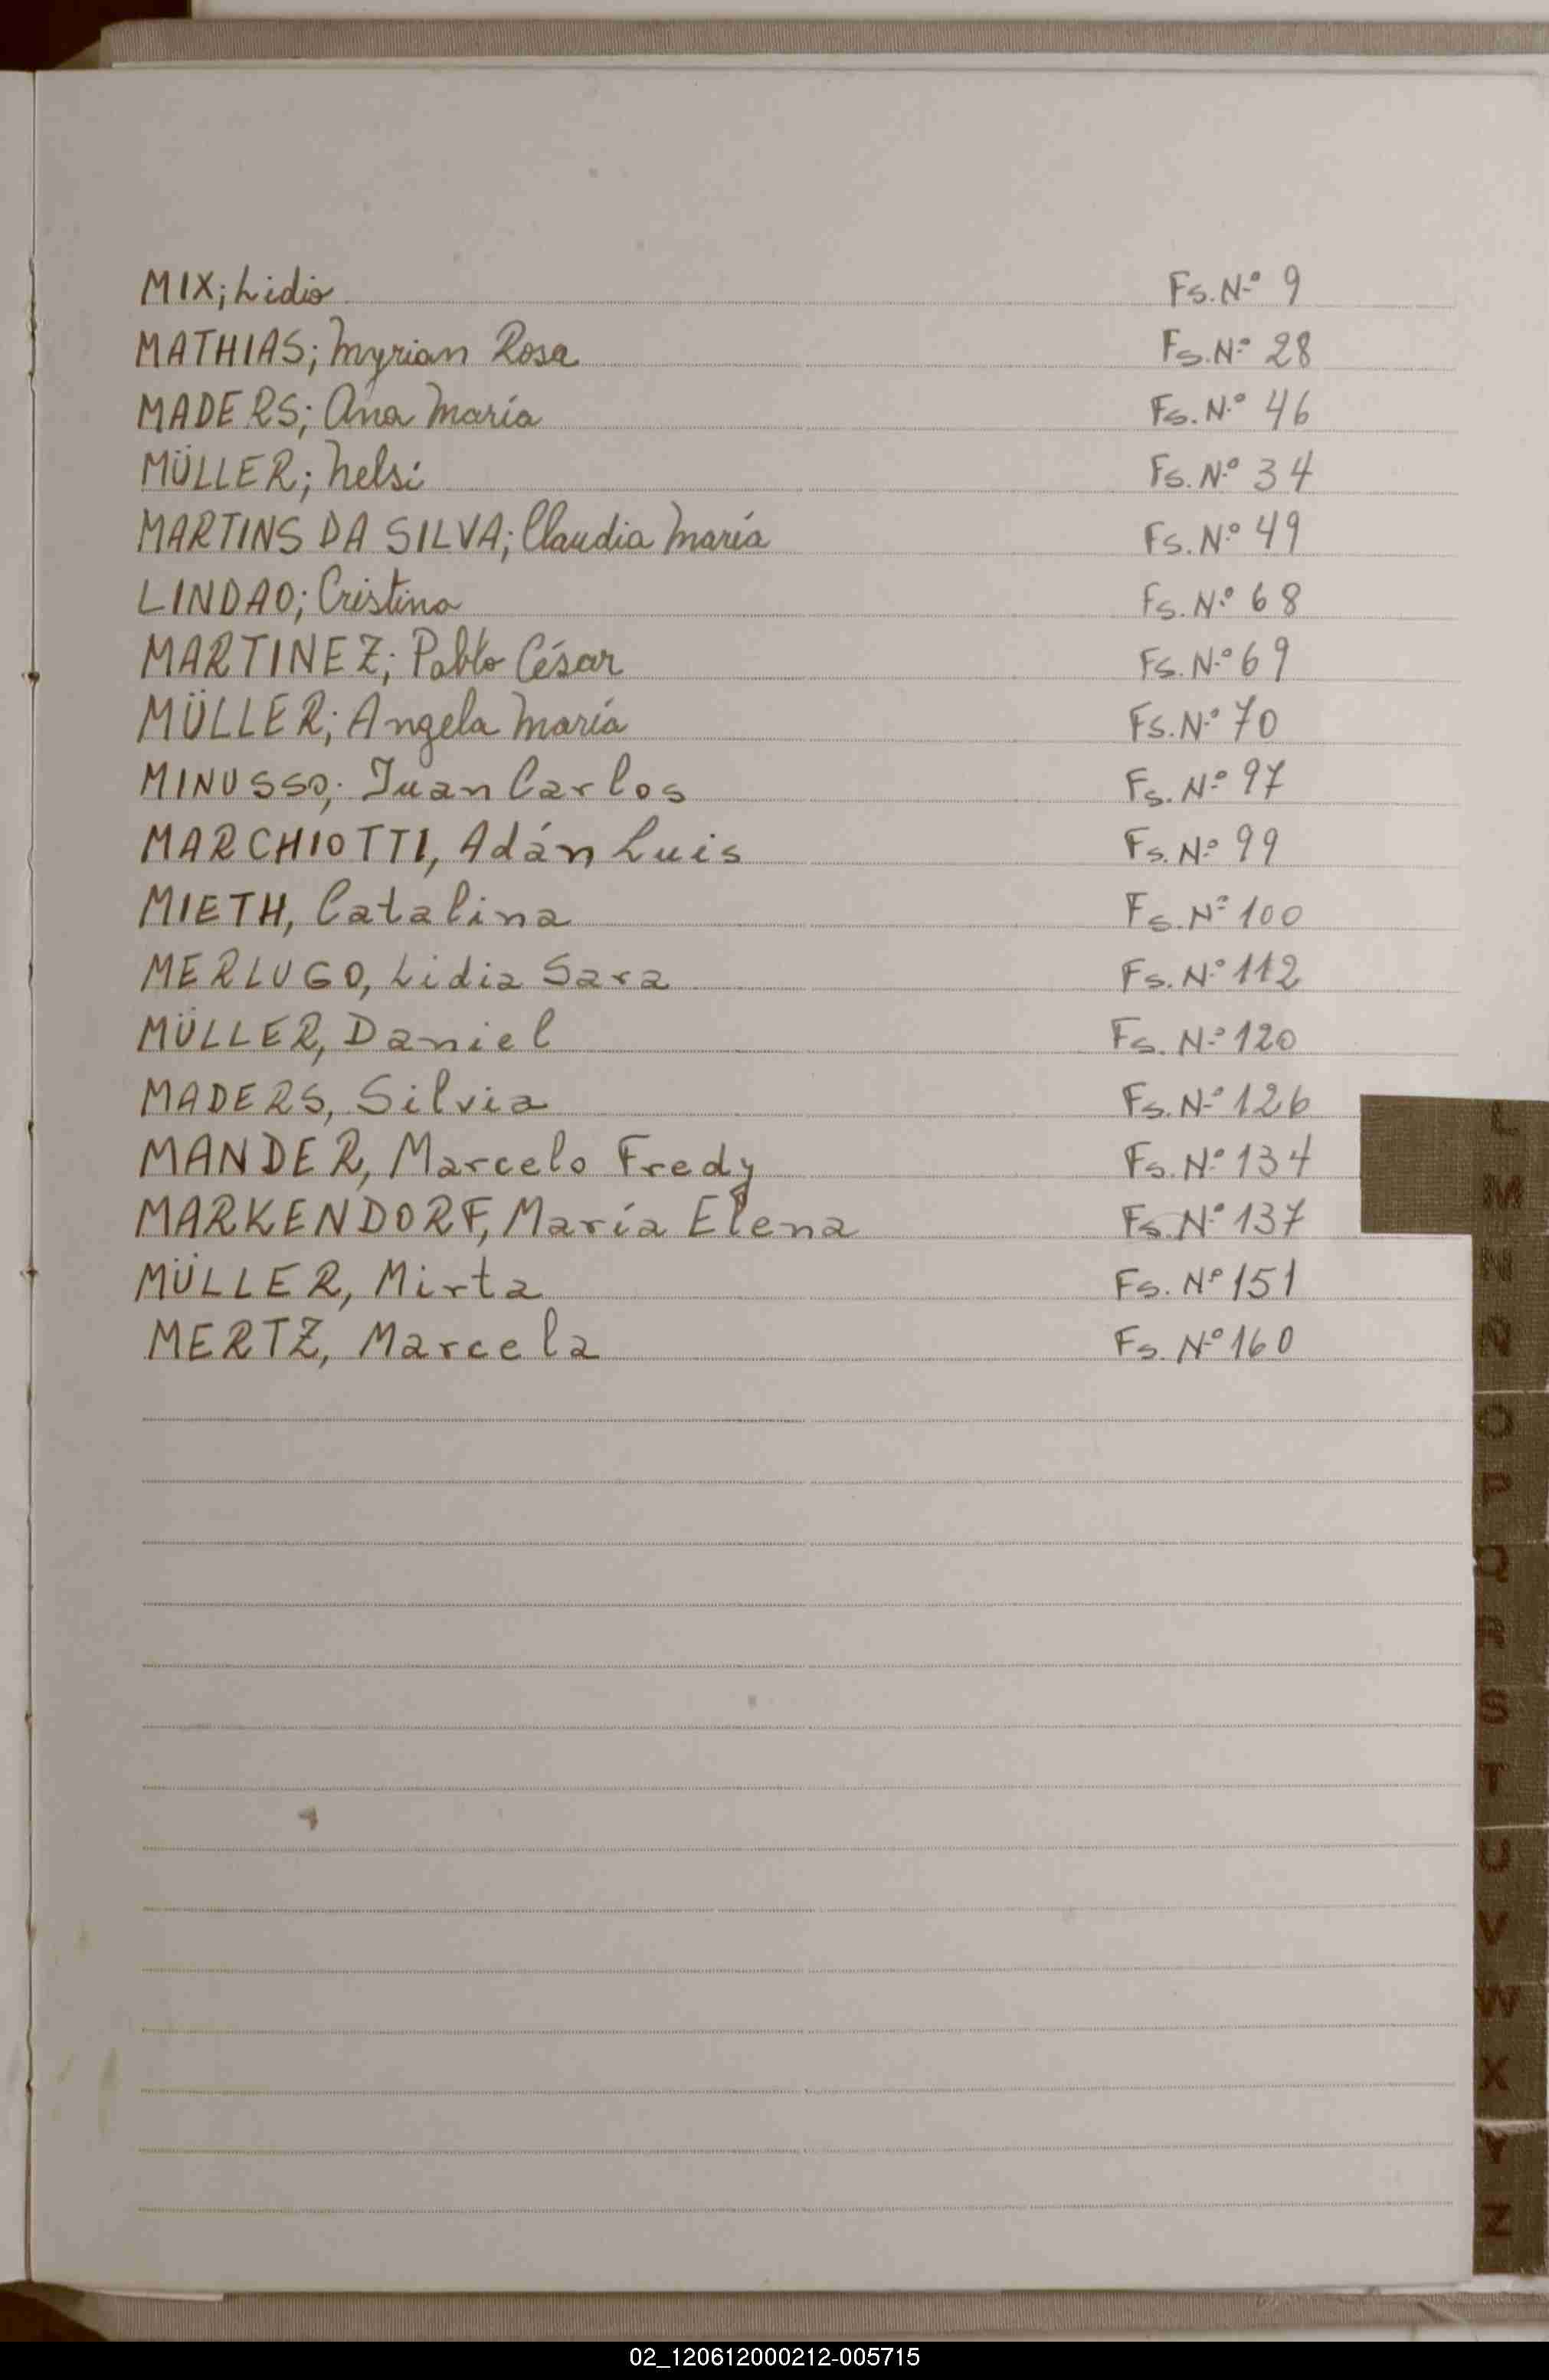 MIX; Lidio Fs. Nº 9
MATHIAS; Myrian Rosa Fs. Nº 28
MADERS; Ana María Fs. Nº 46
MÜLLER; Nelsi Fs. Nº 34
MARTINS DA SILVA; Claudia María Fs. Nº 49
LINDAO; Cristina Fs. Nº 68
MARTINEZ; Pablo César Fs. Nº 69
MÜLLER; Angela María Fs. Nº 70
MINUSSO; Juan Carlos Fs. Nº 97
MARCHIOTTI, Adán Luis Fs. Nº 99
MIETH, Catalina Fs. Nº 100
MERLUGO, Lidia Sara Fs. Nº 112
MÜLLER, Daniel Fs. Nº 120
MADERS, Silvia Fs. Nº 126
MANDER, Marcelo Fredy Fs. Nº 134
MARKENDORF, María Elena Fs. Nº 137
MÜLLER, Mirta Fs. Nº 151
MERTZ, Marcela Fs. Nº 160
L
M
N
Ñ
O
P
Q
R
S
T
U
V
W
X
Y
Z
02_120612000212-005715